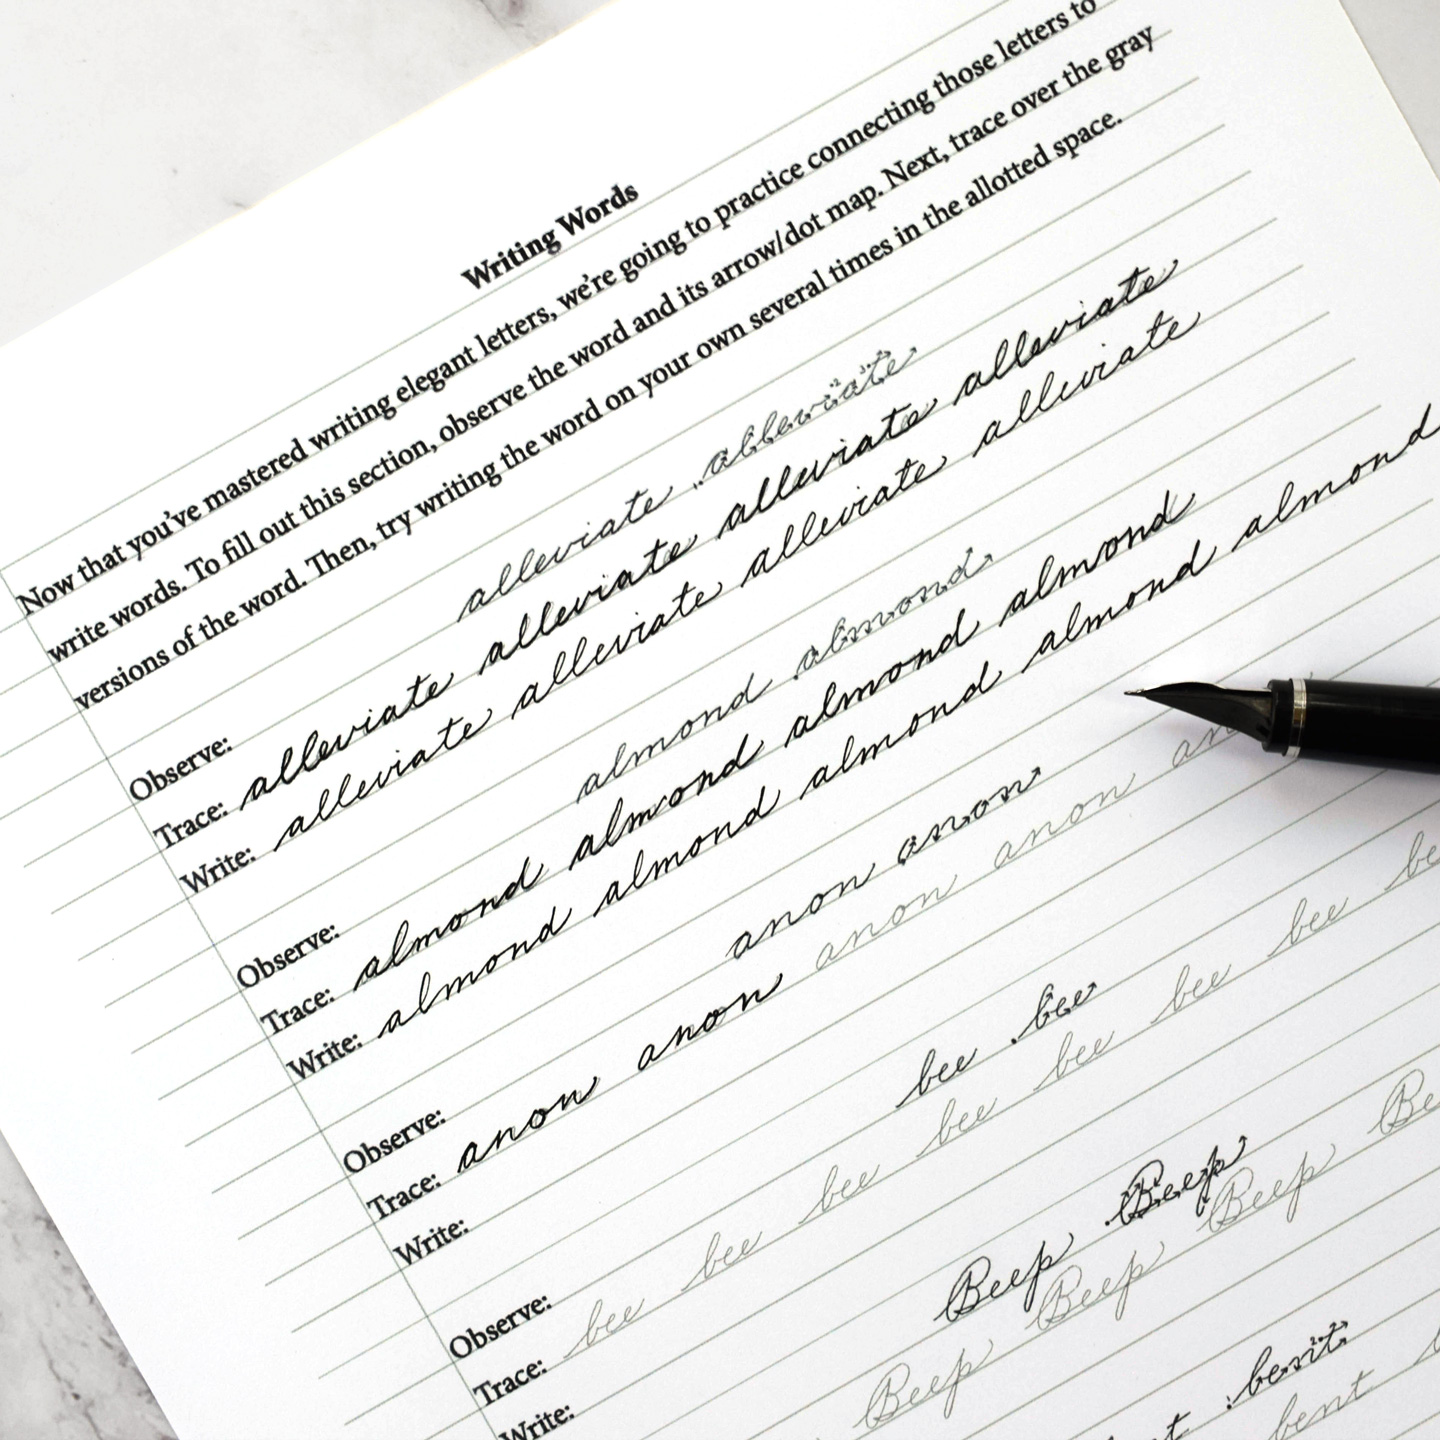 Writing Words
Now that you've mastered writing elegant letters, we're going to practice connecting those letters to
write words. To fill out this section, observe the word and its arrow/dot map. Next, trace over the gray
versions of the word. Then, try writing the word on your own several times in the allotted space.
Observe: alleviate alleviate
Trace: alleviate alleviate alleviate alleviate
Write: alleviate alleviate alleviate alleviate
Observe: almond almond
Trace: almond almond almond almond
Write: almond almond almond almond almond
Observe: anon anon
Trace: anon anon anon anon an
Write:
Observe: bee bee
Trace: bee bee bee bee bee bee bee be
Write:
Beep Beep
Beep Beep Beep Be
bent
bent